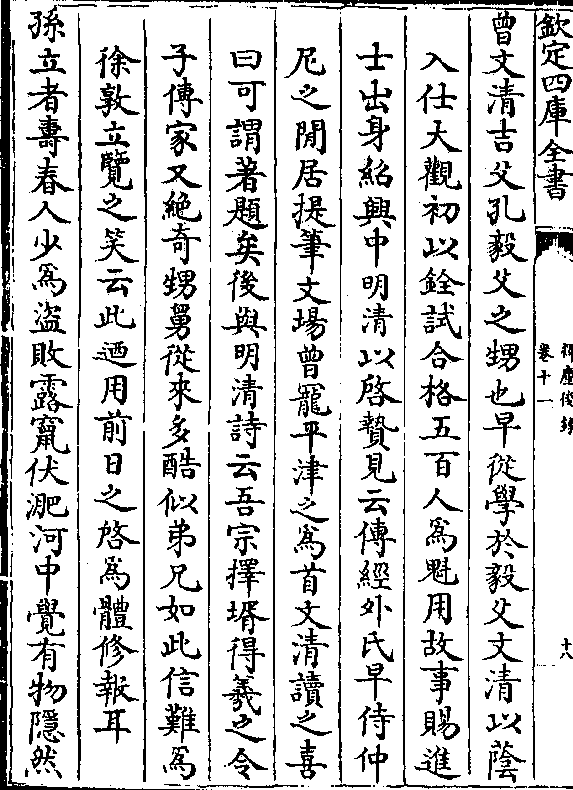 欽定四庫全書
揮麈後録
卷十一
十八
曾文清吉父孔毅父之甥也早從學於毅父文清以蔭
入仕大觀初以銓試合格五百人為魁用故事賜進
士出身紹興中明清以啓贄見云傳經外氏早侍仲
尼之閒居提筆文場曾寵平津之為首文清讀之喜
曰可謂著題矣後與明清詩云吾宗擇壻得羲之令
子傳家又絶奇甥舅從來多酷似弟兄如此信難為
徐敦立覽之笑云此迺用前日之啓為體修報耳
孫立者壽春人少為盗敗露竄伏淝河中覺有物隠然